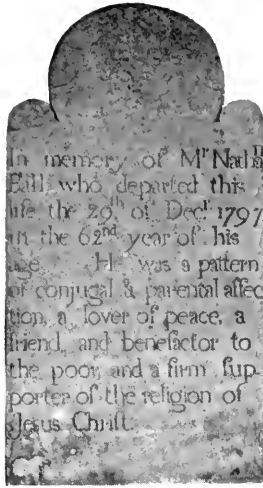 In memory of Mr Nathll
Balll who departed this
life the 29th of Decr 1797
in the 62nd year of his
age He was a pattern
of conjugal & parental affec
tion, a lover of peace, a
friend, and benefactor to
the poor, and a firm sup
porter of the religion of
Jesus Christ.